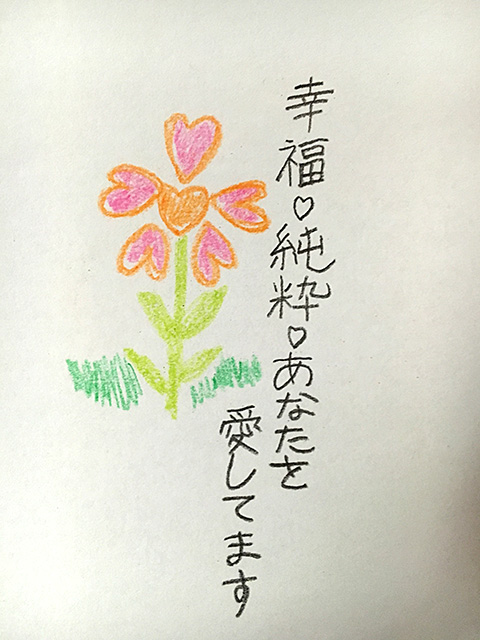 幸福♡純粋♡あなたを
愛してます